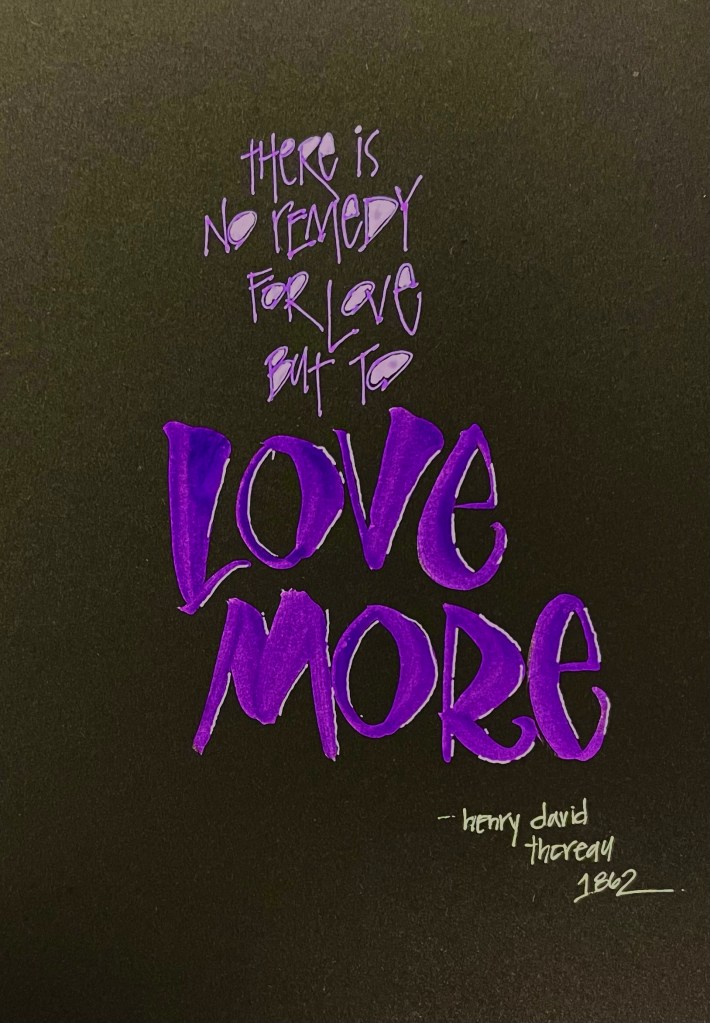 tHeRe is
NO rEMeDY
FOR LOVe
BUt TO
LOVe
MORe
- henry david
thoreau
1862